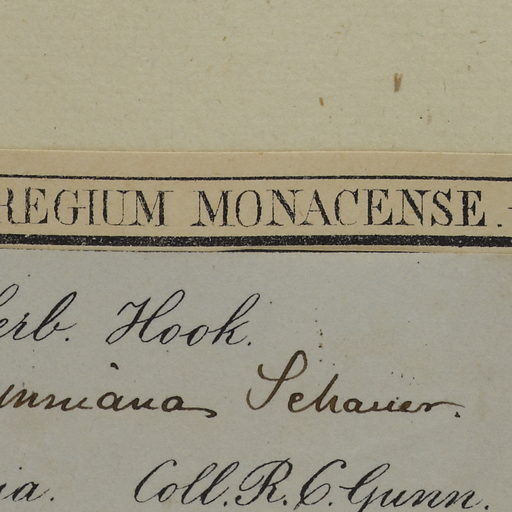 REGIUM MONACENSE.
erb. Hook.
nniana Schauer.
ia. Coll. R. C. Gunn.